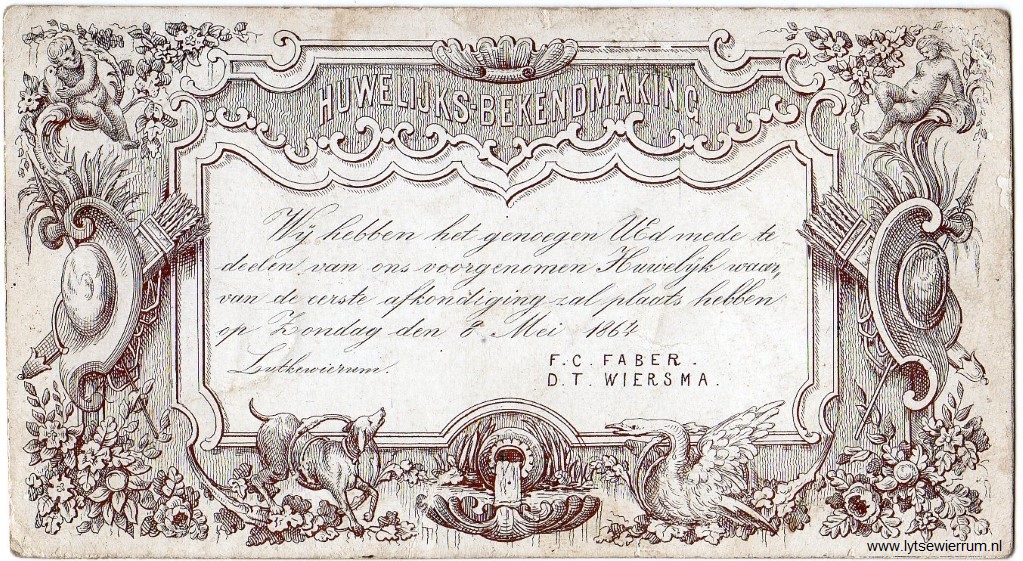 HUWELIJKS-BEKENDMAKING
Wij hebben het genoegen UEd mede te
deelen van ons voorgenomen Huwelijk waar,
van de eerste afkondiging zal plaats hebben
op Zondag den 8 Mei 1864
Lutkewierum.
F. C. FABER.
D. T. WIERSMA.
www.lytsewierrum.nl